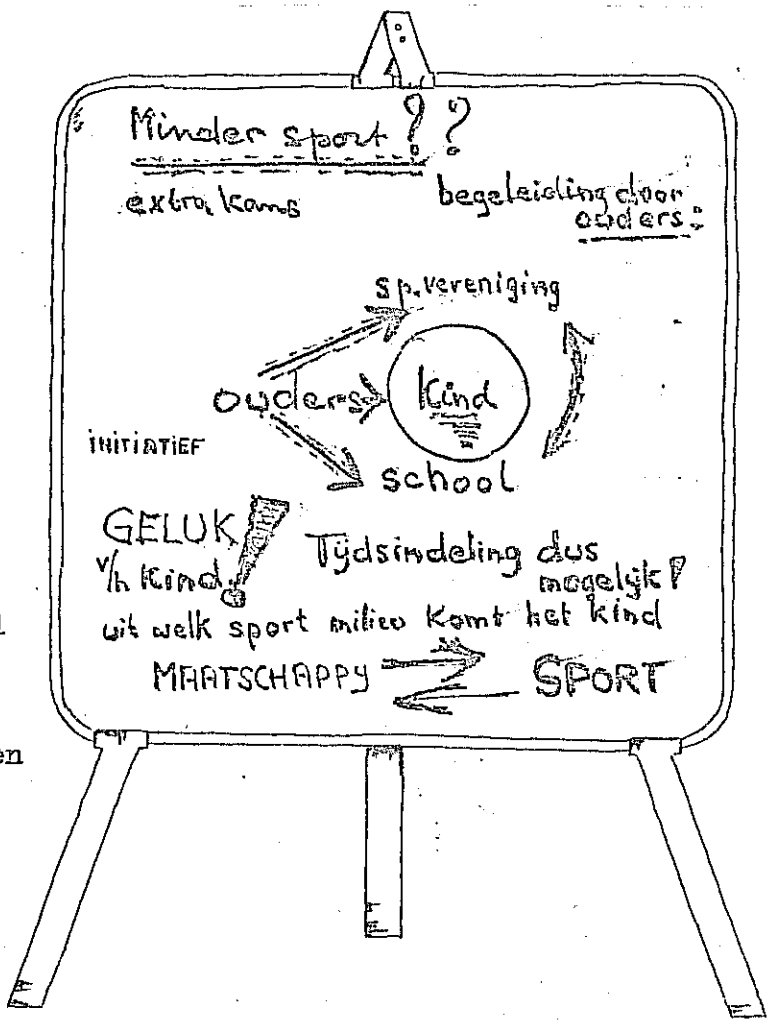 Minder sport ??
extra kans
begeleiding door
ouders:
sp. vereniging
ouders
Kind
INITIATIEF
school
GELUK !
v/h Kind.
Tijdsindeling dus
mogelijk!
uit welk sport milieu komt het kind
MAATSCHAPPY
SPORT
en